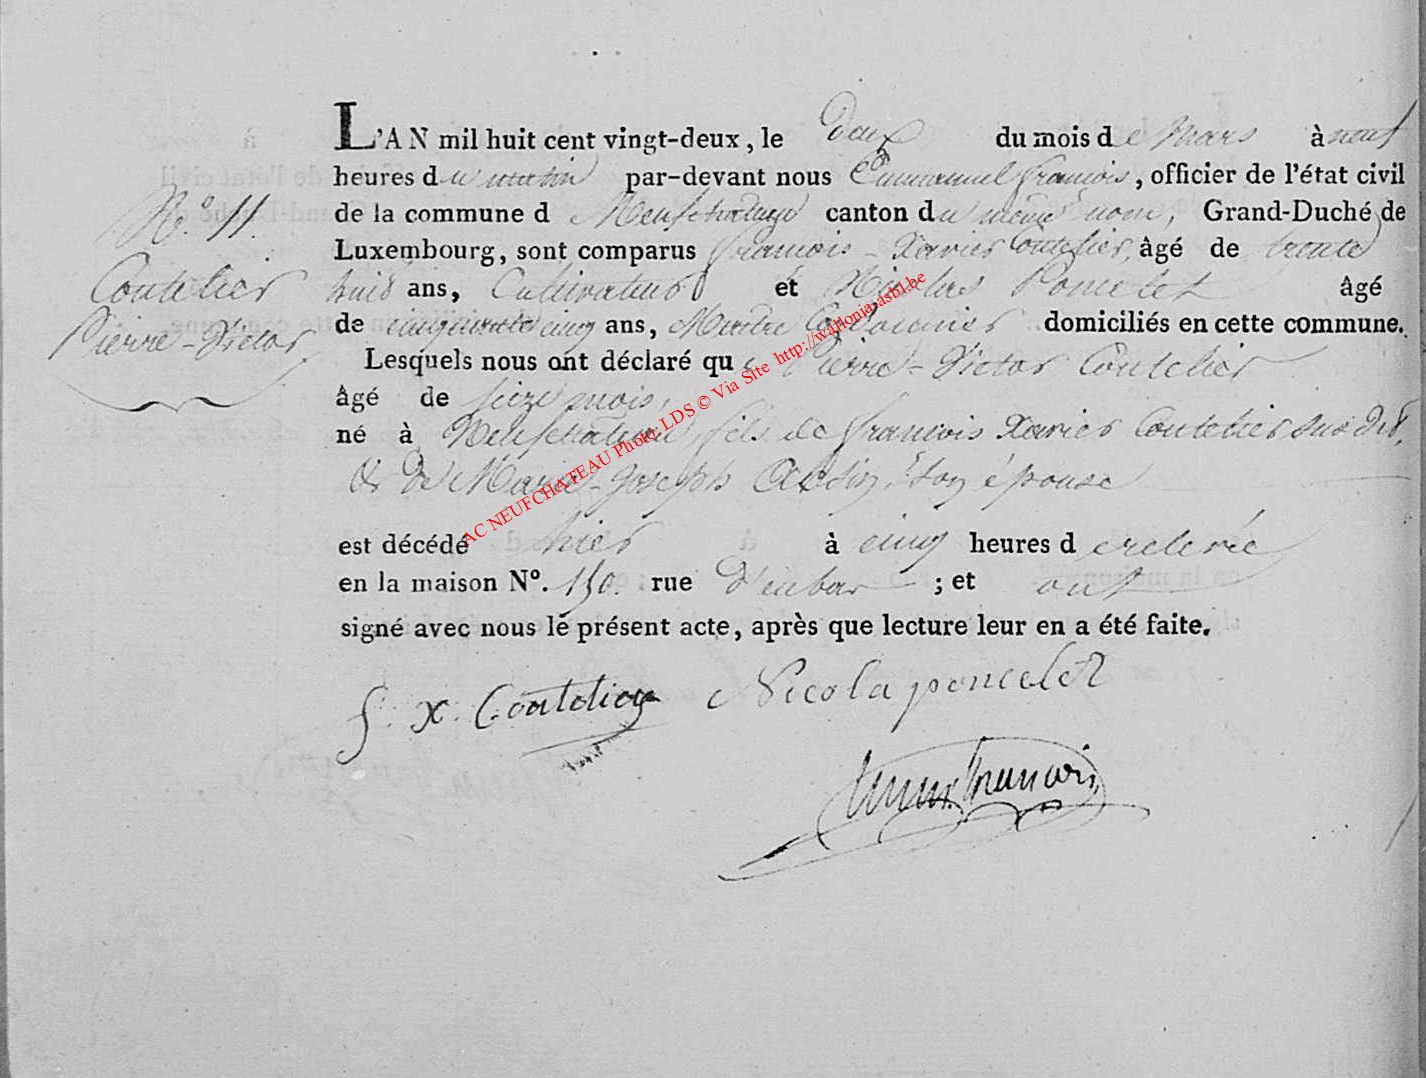 L'AN mil huit cent vingt-deux, le deux du mois de Mars à neuf
heures du matin par-devant nous Emmanuel françois, officier de l'état civil
N.º 11.
de la commune d Neufchateau canton du même nom, Grand-Duché de
Luxembourg, sont comparus françois-Xavier Coutelier, âgé de trente
Coutelier
huit ans, Cultivateur et Nicolas Poncelet âgé
Pierre-Victor
de cinquante cinq ans, Maitre Cordonnier domiciliés en cette commune.
Lesquels nous ont déclaré que Pierre-Victor Coutelier
âgé de seize mois,
né à Neufchateau, fils de françois Xavier Coutelier sus dit,
& de Marie-Joseph son épouse
est décédé hier à cinq heures d
en la maison Nº. 150. rue ; et ont
signé avec nous le présent acte, après que lecture leur en a été faite.
f. X. Coutelier Nicola poncelet
Emm. françois
AC NEUFCHATEAU Photo: LDS © Via Site http://wallonia-asbl.be